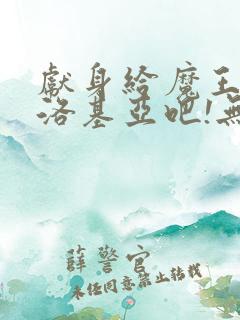 獻身給魔王
洛基亞吧!無
薛警官
未任同意禁止转载